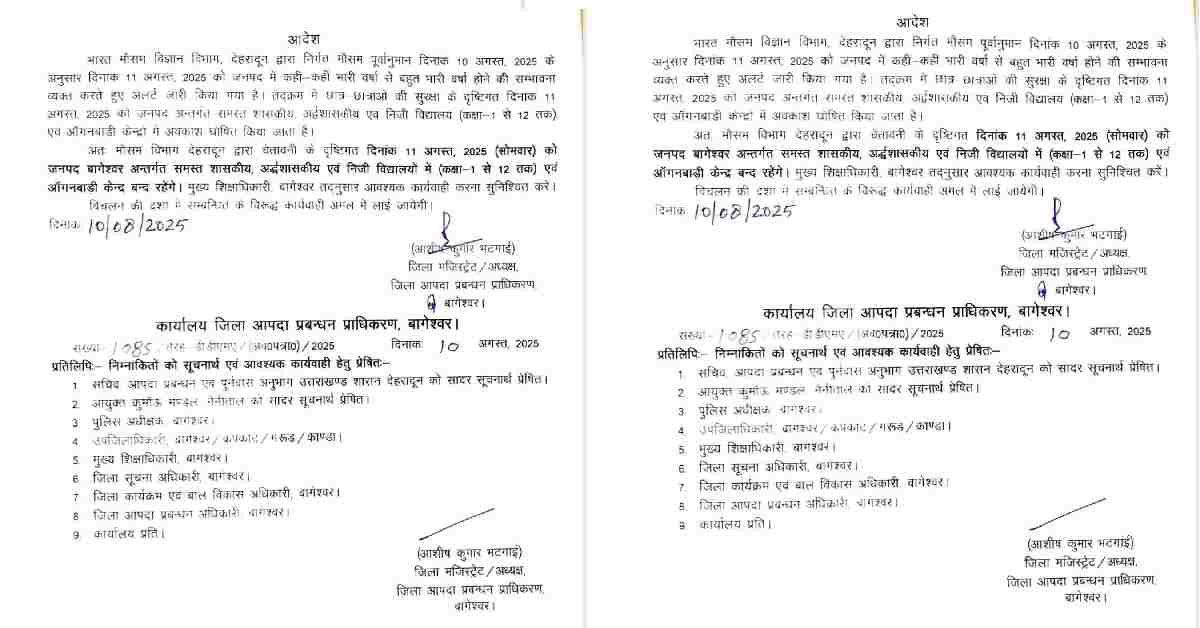 आदेश
भारत मौसम विज्ञान विभाग, देहरादून द्वारा निर्गत मौसम पूर्वानुमान दिनांक 10 अगस्त, 2025 के
अनुसार दिनांक 11 अगस्त, 2025 को जनपद में कहीं-कहीं भारी वर्षा से बहुत भारी वर्षा होने की सम्भावना
व्यक्त करते हुए अलर्ट जारी किया गया है। तदक्रम में छात्र-छात्राओं की सुरक्षा के दृष्टिगत दिनांक 11
अगस्त, 2025 को जनपद अन्तर्गत समस्त शासकीय, अर्द्धशासकीय एवं निजी विद्यालय (कक्षा-1 से 12 तक)
एवं आँगनबाड़ी केन्द्रों में अवकाश घोषित किया जाता है।
अतः मौसम विभाग देहरादून द्वारा चेतावनी के दृष्टिगत दिनांक 11 अगस्त, 2025 (सोमवार) को
जनपद बागेश्वर अन्तर्गत समस्त शासकीय, अर्द्धशासकीय एवं निजी विद्यालयों में (कक्षा-1 से 12 तक) एवं
आँगनबाड़ी केन्द्र बन्द रहेंगे। मुख्य शिक्षाधिकारी, बागेश्वर तद्नुसार आवश्यक कार्यवाही करना सुनिश्चित करें।
विचलन की दशा में सम्बन्धित के विरूद्ध कार्यवाही अमल में लाई जायेगी।
दिनांक 10/08/2025
(आशीष कुमार भटगाई)
जिला मजिस्ट्रेट/अध्यक्ष,
जिला आपदा प्रबन्धन प्राधिकरण,
बागेश्वर।
कार्यालय जिला आपदा प्रबन्धन प्राधिकरण, बागेश्वर।
संख्या- 1085 /तेरह-डी.डी.एम.ए/(अ०प०त्रा०)/2025 दिनांकः 10 अगस्त, 2025
प्रतिलिपिः- निम्नांकितो को सूचनार्थ एवं आवश्यक कार्यवाही हेतु प्रेषितः-
1. सचिव आपदा प्रबन्धन एवं पुर्नवास अनुभाग उत्तराखण्ड शासन देहरादून को सादर सूचनार्थ प्रेषित।
2. आयुक्त कुमॉऊ मण्डल नैनीताल को सादर सूचनार्थ प्रेषित।
3 पुलिस अधीक्षक बागेश्वर।
4 उपजिलाधिकारी, बागेश्वर/कपकोट/गरूड/काण्डा।
5. मुख्य शिक्षाधिकारी, बागेश्वर।
6 जिला सूचना अधिकारी, बागेश्वर।
7 जिला कार्यक्रम एवं बाल विकास अधिकारी, बागेश्वर।
8 जिला आपदा प्रबन्धन अधिकारी, बागेश्वर।
9. कार्यालय प्रति।
(आशीष कुमार भटगाई)
जिला मजिस्ट्रेट/अध्यक्ष,
जिला आपदा प्रबन्धन प्राधिकरण,
बागेश्वर।
आदेश
भारत मौसम विज्ञान विभाग, देहरादून द्वारा निर्गत मौसम पूर्वानुमान दिनांक 10 अगस्त, 2025 के
अनुसार दिनांक 11 अगस्त, 2025 को जनपद में कहीं-कहीं भारी वर्षा से बहुत भारी वर्षा होने की सम्भावना
व्यक्त करते हुए अलर्ट जारी किया गया है। तदक्रम में छात्र-छात्राओं की सुरक्षा के दृष्टिगत दिनांक 11
अगस्त, 2025 को जनपद अन्तर्गत समस्त शासकीय, अर्द्धशासकीय एवं निजी विद्यालय (कक्षा-1 से 12 तक)
एवं आँगनबाड़ी केन्द्रों में अवकाश घोषित किया जाता है।
अतः मौसम विभाग देहरादून द्वारा चेतावनी के दृष्टिगत दिनांक 11 अगस्त, 2025 (सोमवार) को
जनपद बागेश्वर अन्तर्गत समस्त शासकीय, अर्द्धशासकीय एवं निजी विद्यालयों में (कक्षा-1 से 12 तक) एवं
आँगनबाड़ी केन्द्र बन्द रहेंगे। मुख्य शिक्षाधिकारी, बागेश्वर तद्नुसार आवश्यक कार्यवाही करना सुनिश्चित करें।
विचलन की दशा में सम्बन्धित के विरूद्ध कार्यवाही अमल में लाई जायेगी।
दिनांक 10/08/2025
(आशीष कुमार भटगाई)
जिला मजिस्ट्रेट/अध्यक्ष,
जिला आपदा प्रबन्धन प्राधिकरण,
बागेश्वर।
कार्यालय जिला आपदा प्रबन्धन प्राधिकरण, बागेश्वर।
संख्या- 1085 /तेरह-डी.डी.एम.ए/(अ०प०त्रा०)/2025 दिनांकः 10 अगस्त, 2025
प्रतिलिपिः- निम्नांकितो को सूचनार्थ एवं आवश्यक कार्यवाही हेतु प्रेषितः-
1. सचिव आपदा प्रबन्धन एवं पुर्नवास अनुभाग उत्तराखण्ड शासन देहरादून को सादर सूचनार्थ प्रेषित।
2. आयुक्त कुमॉऊ मण्डल नैनीताल को सादर सूचनार्थ प्रेषित।
3 पुलिस अधीक्षक बागेश्वर।
4. उपजिलाधिकारी, बागेश्वर/कपकोट/गरूड/काण्डा।
5. मुख्य शिक्षाधिकारी, बागेश्वर।
6. जिला सूचना अधिकारी, बागेश्वर।
7. जिला कार्यक्रम एवं बाल विकास अधिकारी, बागेश्वर।
8. जिला आपदा प्रबन्धन अधिकारी, बागेश्वर।
9 कार्यालय प्रति।
(आशीष कुमार भटगाई)
जिला मजिस्ट्रेट/अध्यक्ष,
जिला आपदा प्रबन्धन प्राधिकरण,
बागेश्वर।